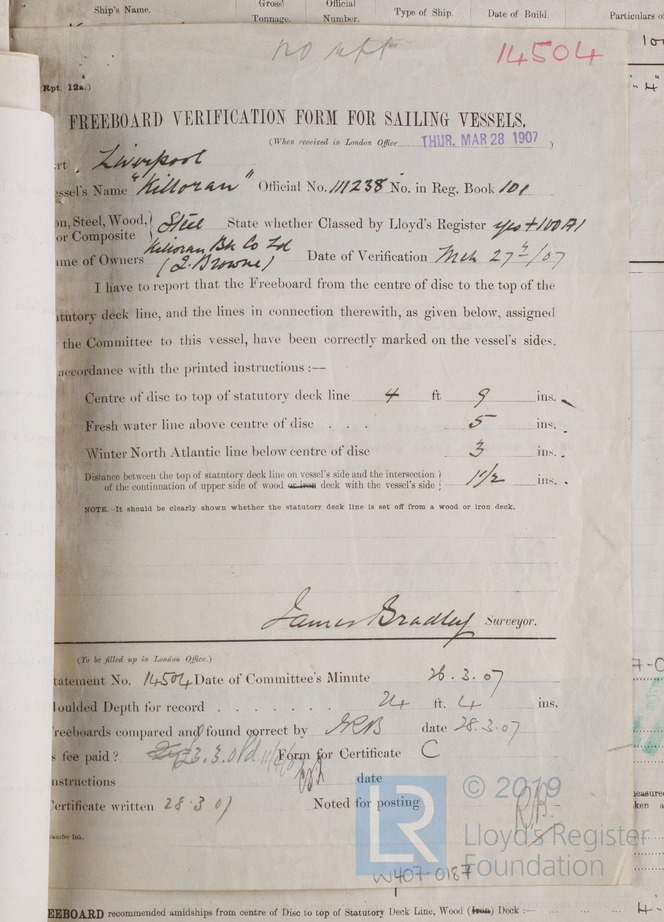 Ship's Name. Gross Tonnage. Official Number. Type of Ship. Date of Build. Particulars o
no rpt 14504
Rpt. 12a.)
FREEBOARD VERIFICATION FORM FOR SAILING VESSELS.
(When received in London Office THUR. MAR 28 1907 )
rt Liverpool
essel's Name "Killoran" Official No. 111238 No. in Reg. Book 101
on, Steel, Wood, or Composite } Steel State whether Classed by Lloyd's Register yes +100A1
ame of Owners Killoran Bk Co Ld (J. Browne) Date of Verification Mch 27th/07
I have to report that the Freeboard from the centre of disc to the top of the
tatutory deck line, and the lines in connection therewith, as given below, assigned
the Committee to this vessel, have been correctly marked on the vessel's sides,
accordance with the printed instructions :—
Centre of disc to top of statutory deck line 4 ft 9 ins.
Fresh water line above centre of disc . . . 5 ins.
Winter North Atlantic line below centre of disc 3 ins.
Distance between the top of statutory deck line on vessel's side and the intersection }
of the continuation of upper side of wood or iron deck with the vessel's side } 1 1/2 ins.
NOTE.—It should be clearly shown whether the statutory deck line is set off from a wood or iron deck.
James Bradley Surveyor.
(To be filled up in London Office.)
tatement No. 14504 Date of Committee's Minute 26.3.07
oulded Depth for record . . . . . . . 24 ft. 4 ins.
reeboards compared and found correct by date 28.3.07
s fee paid? Form for Certificate C
nstructions date
Certificate written 28 3 07 Noted for posting RB
ransfer Ink.
LR © 2019
Lloyd's Register
Foundation
W407-0187
EEBOARD recommended amidships from centre of Disc to top of Statutory Deck Line, Wood (Iron) Deck :—